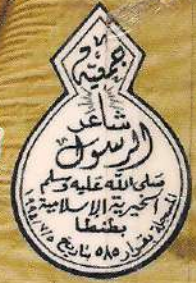 جمعية
شاعر
الرسول
صلى الله عليه وسلم
الخيرية الإسلامية
بطنطا
المسجلة بقرار ٥٨٥ بتاريخ ١٩٩٤/٧/٥